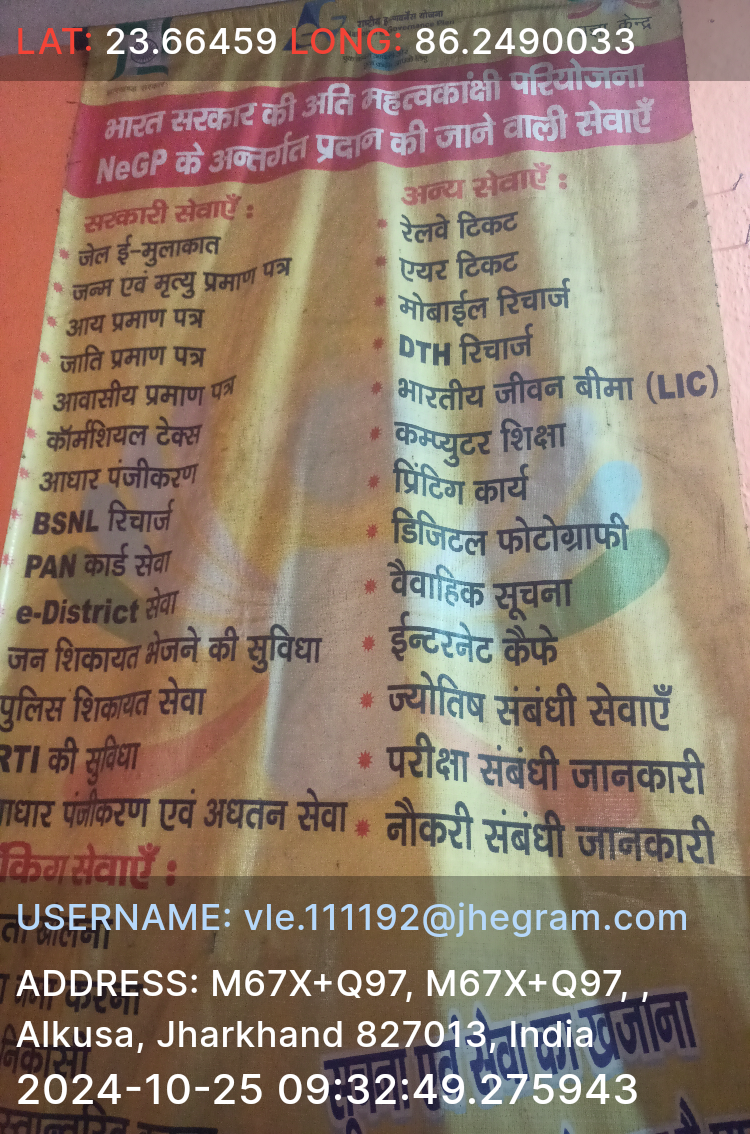 LAT: 23.66459 LONG: 86.2490033
राष्ट्रीय ई-गवर्नेन्स योजना
केन्द्र
झारखण्ड सरकार
भारत सरकार की अति महत्वकांक्षी परियोजना
NeGP के अन्तर्गत प्रदान की जाने वाली सेवाएँ
सरकारी सेवाएँ :
जेल ई-मुलाकात
जन्म एवं मृत्यु प्रमाण पत्र
आय प्रमाण पत्र
जाति प्रमाण पत्र
आवासीय प्रमाण पत्र
कॉर्मशियल टेक्स
आधार पंजीकरण
BSNL रिचार्ज
PAN कार्ड सेवा
e-District सेवा
जन शिकायत भेजने की सुविधा
पुलिस शिकायत सेवा
RTI की सुविधा
ाधार पंजीकरण एवं अधतन सेवा
अन्य सेवाएँ :
रेलवे टिकट
एयर टिकट
मोबाईल रिचार्ज
DTH रिचार्ज
भारतीय जीवन बीमा (LIC)
कम्प्युटर शिक्षा
प्रिंटिग कार्य
डिजिटल फोटोग्राफी
वैवाहिक सूचना
ईन्टरनेट कैफे
ज्योतिष संबंधी सेवाएँ
परीक्षा संबंधी जानकारी
नौकरी संबंधी जानकारी
किंग सेवाएँ :
USERNAME: vle.111192@jhegram.com
ADDRESS: M67X+Q97, M67X+Q97, ,
Alkusa, Jharkhand 827013, India
2024-10-25 09:32:49.275943
सूचना एवं सेवा का खजाना